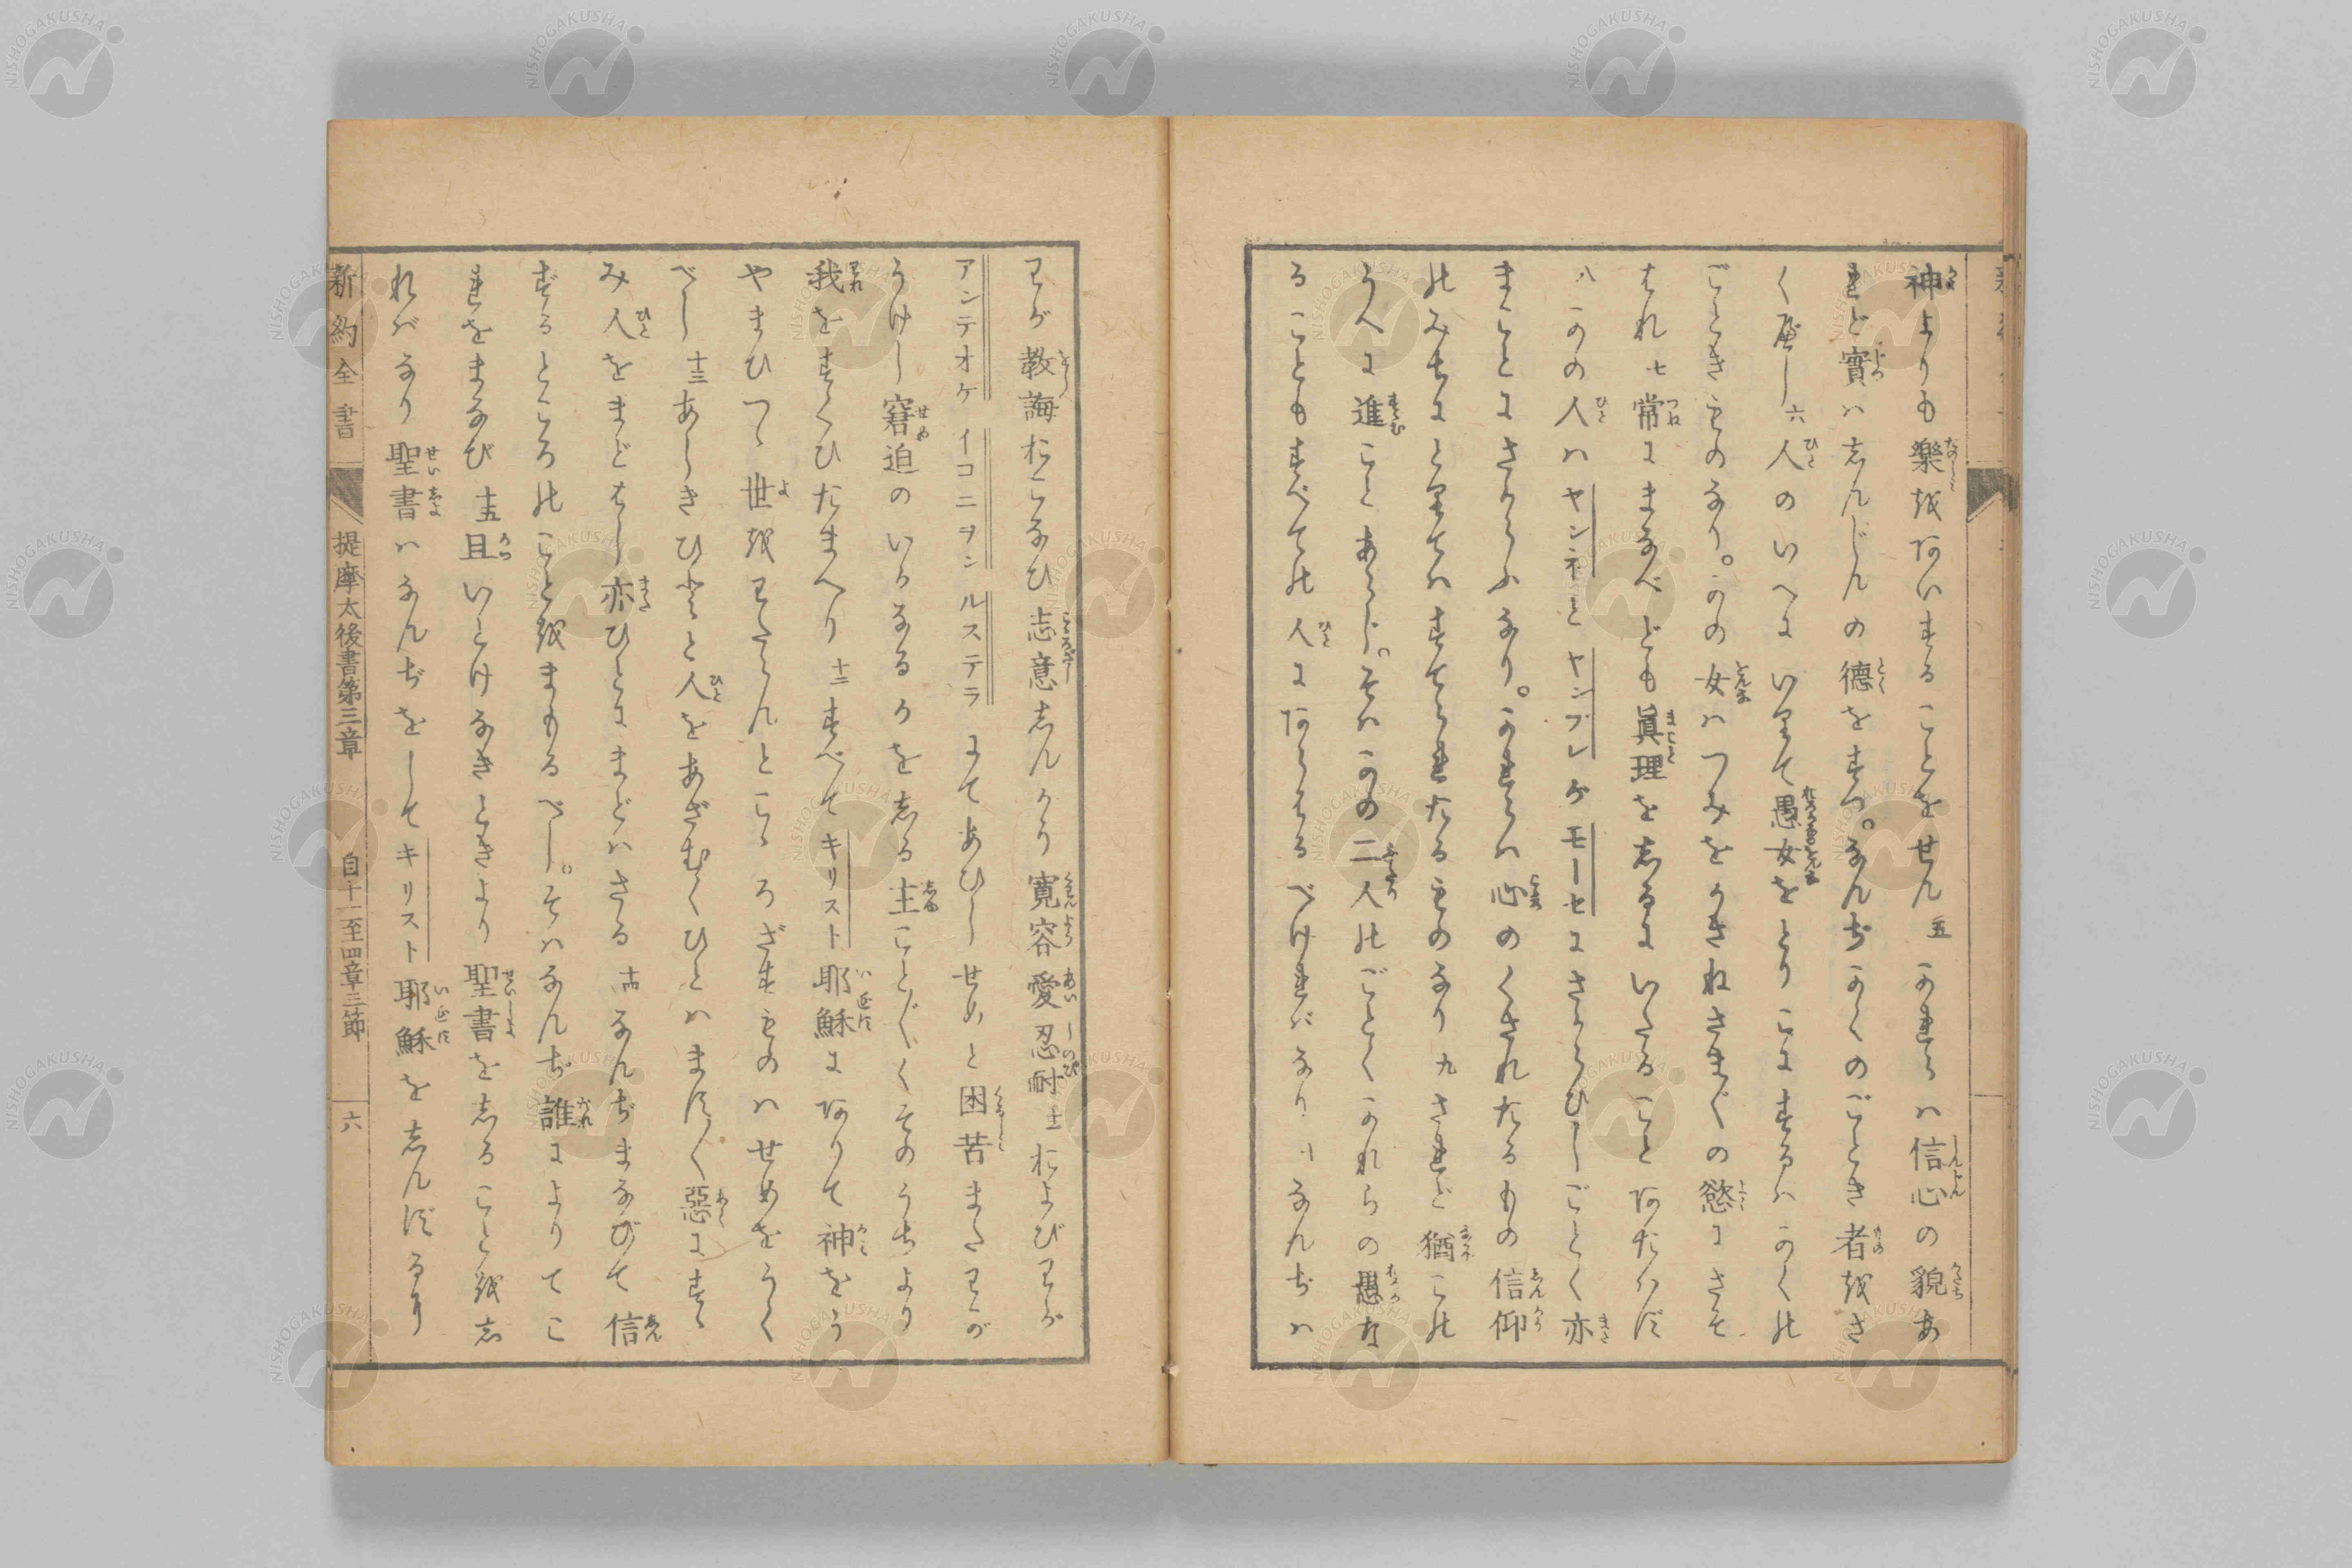 神よりも樂をあいすることをせん 五 かれらハ信心の貌あ
れど實ハしんじんの德をすつ。なんぢかくのごとき者をさ
く應し 六 人のいへにいりて愚女をとりこにするハかくの
ごときものなり。かの女ハつみをかさねさま〴〵の慾にさそ
はれ 七 常にまなべども眞理をしるにいたることあたはず
八 かの人ハヤンネとヤンブレがモーセにさからひしごとく亦
まことにさからふなり。かれらハ心のくされたるもの信仰
のみちにとりてハすてられたるものなり 九 されど猶この
うへに進ことあらじ。そハかの二人のごとくかれらの愚な
ることもすべての人にあらはるべければなり 十 なんぢハ
わが教誨おこなひ志意しんかう寛容愛忍耐 十一 およびわが
アンテオケ イコニヲン ルステラにてあひしせめと困苦またわが
うけし窘迫のいかなるかをしる主こと〴〵くそのうちより
我をすくひたまへり 十二 すべてキリスト耶穌にありて神をう
やまひつゝ世をわたらんとこゝろざすものハせめをうく
べし 十三 あしきひとと人をあざむくひとハます〳〵惡にすゝ
み人をまどはし亦ひとにまどハさる 十四 なんぢまなびて信
ずるところのことをまもるべし。そハなんぢ誰によりてこ
れをまなび 十五 且いとけなきときより聖書をしることをし
ればなり聖書ハなんぢをしてキリスト耶穌をしんずるより
新約全書 提摩太後書第三章 自十一至四章三節 六